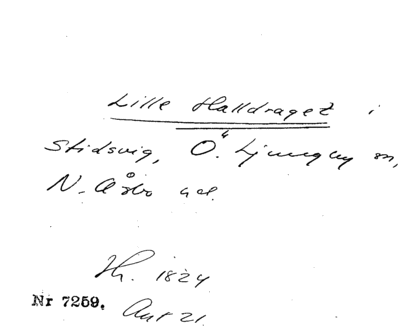 Lille Halldraget i
Stidsvig, Ö. Ljungby sn,
N. Åsbo hd.
Th. 1824
Nr 7259. Ant 21.